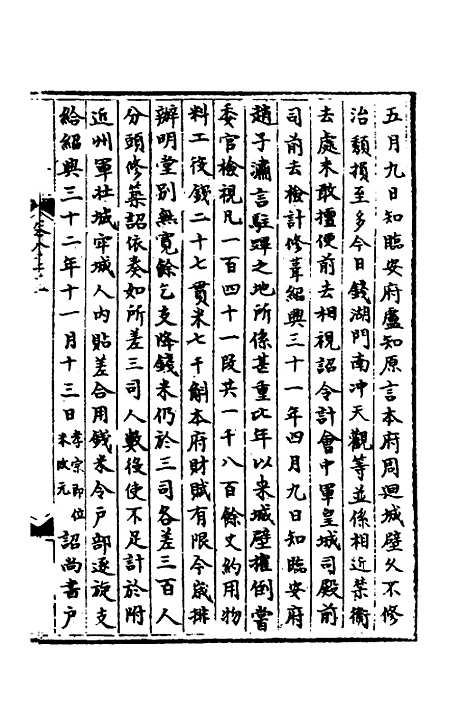 五月九日知臨安府盧知原言本府周迴城壁久不修
治頹損至多今日錢湖門南冲天觀等並係相近禁衛
去處未敢擅便前去相視詔令計會中軍皇城司殿前
司前去檢計修葺紹興三十一年四月九日知臨安府
趙子潚言駐蹕之地所係甚重比年以來城壁摧倒嘗
委官檢視凡一百四十一段共一千八百餘丈約用物
料工役錢二十七貫米七千斛本府財賦有限今歲排
辦明堂別無寬餘乞支降錢米仍於三司各差三百人
分頭修築詔依奏如所差三司人數役使不足計於附
近州軍壯城牢城人內貼差合用錢米令戶部逐旋支
給紹興三十二年十一月十三日孝宗即位未改元詔尚書戶